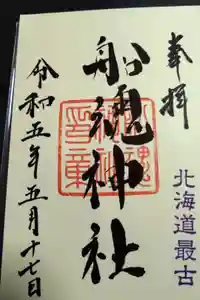 奉拝
北海道最古
船魂神社
令和五年五月十七日